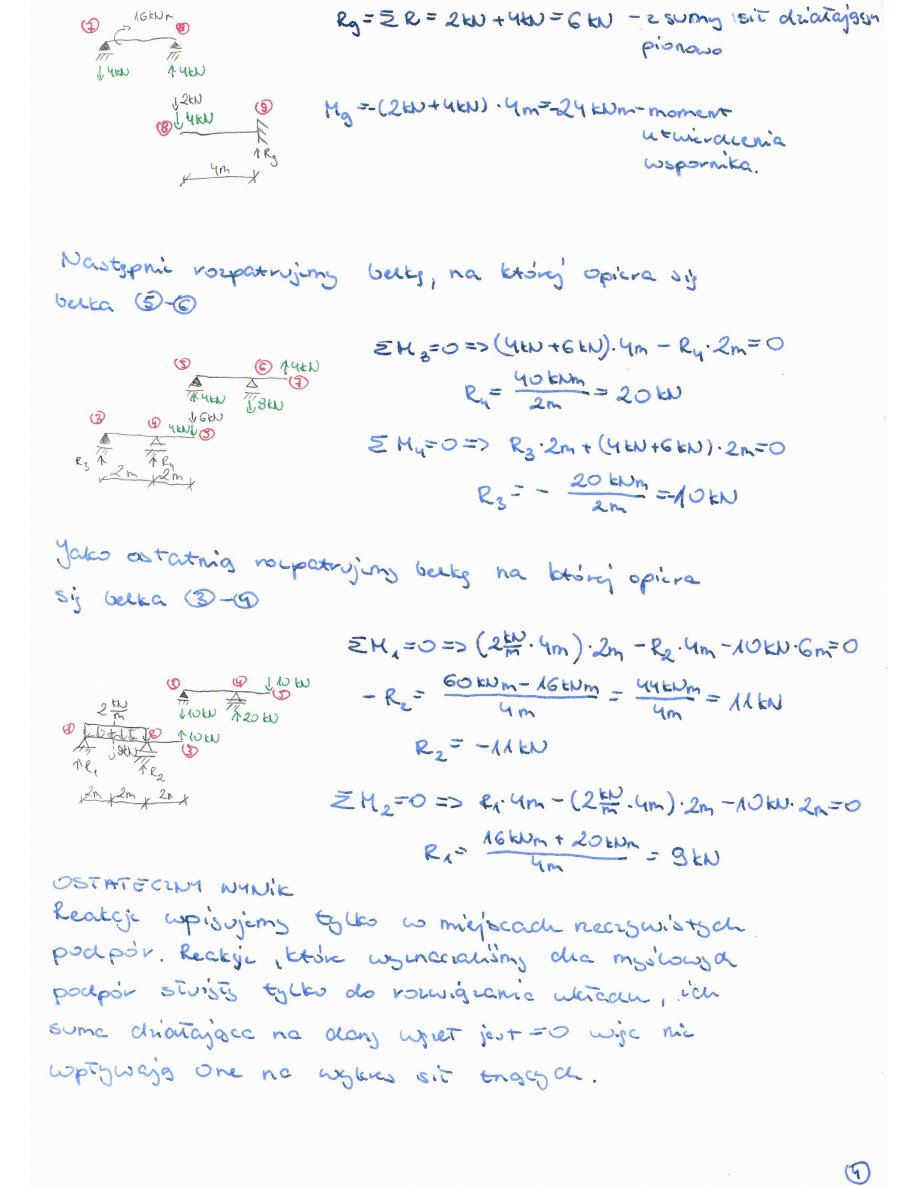 ① 16kNm ⑧
↓4kN ↑4kN
R₉ = ΣR = 2kN + 4kN = 6kN - z sumy sił działających
pionowo
↓2kN
↓4kN
⑧ ⑨
↑R₉
4m
M₉ = -(2kN+4kN)·4m = -24kNm - moment
utwierdzenia
wspornika.
Następnie rozpatrujemy belkę, na której opiera się
belka ⑤-⑥
⑤ ⑥ ↑4kN ⑦
↑4kN ↓8kN
↓6kN
③ ④ 4kN↓ ⑤
R₃↑ ↑R₄
2m 2m
ΣM₃=0 => (4kN+6kN)·4m - R₄·2m=0
R₄ = 40kNm / 2m = 20kN
ΣM₄=0 => R₃·2m + (4kN+6kN)·2m=0
R₃ = - 20kNm / 2m = -10kN
Jako ostatnią rozpatrujemy belkę na której opiera
się belka ③-④
③ ④ ↓10kN ⑤
↓10kN ↑20kN
2 kN/m
① ② ↑10kN ③
↓8kN
↑R₁ ↑R₂
2m 2m 2m
ΣM₁=0 => (2 kN/m · 4m)·2m - R₂·4m - 10kN·6m=0
-R₂ = 60kNm - 16kNm / 4m = 44kNm / 4m = 11kN
R₂ = -11kN
ΣM₂=0 => R₁·4m - (2 kN/m · 4m)·2m - 10kN·2m=0
R₁ = 16kNm + 20kNm / 4m = 9kN
OSTATECZNY WYNIK
Reakcje wpisujemy tylko w miejscach rzeczywistych
podpór. Reakcje, które wyznaczaliśmy dla myślowych
podpór służyły tylko do rozwiązania układu, ich
suma działająca na dany węzeł jest =0 więc nie
wpływają one na wykres sił tnących.
④